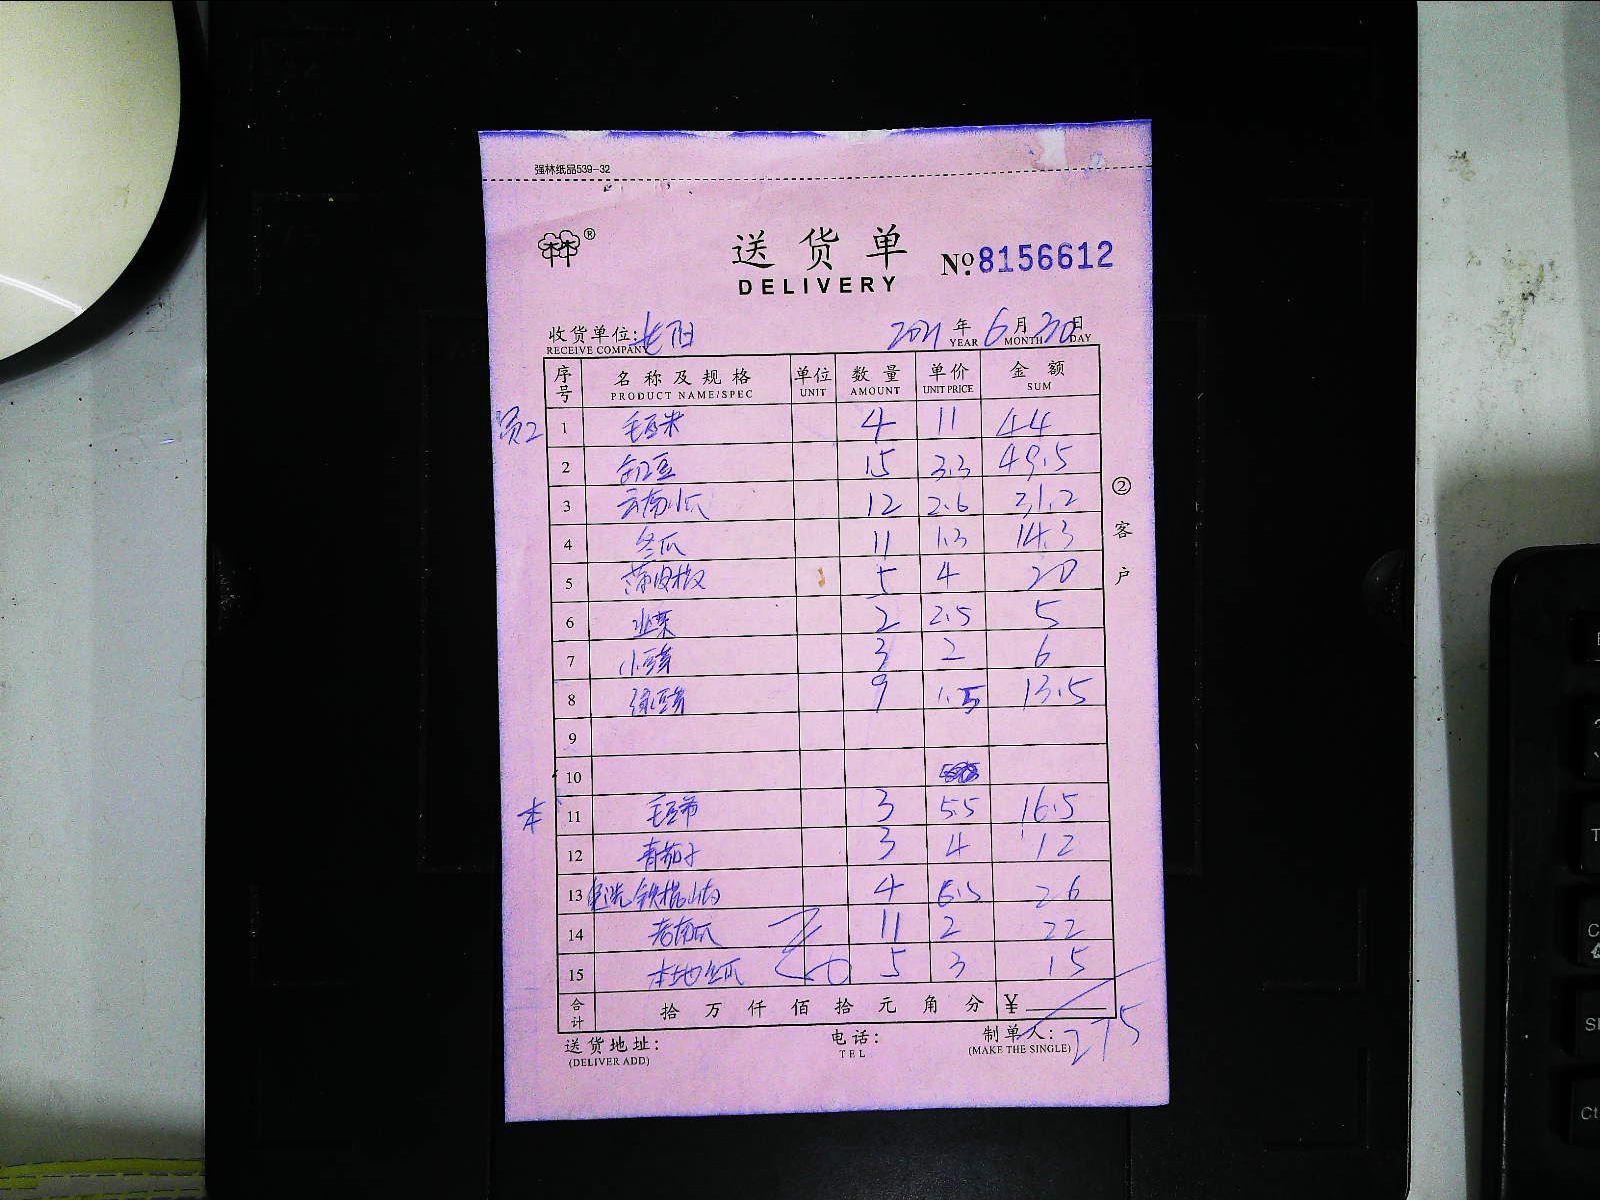 强林纸品539-32
林林®
送货单
DELIVERY
№ 8156612
收货单位: 长阳 2021年6月30日
RECEIVE COMPANY YEAR MONTH DAY
序号 名称及规格 单位 数量 单价 金额
PRODUCT NAME/SPEC UNIT AMOUNT UNIT PRICE SUM
1 毛豆米 4 11 44
2 豇豆 15 3.3 49.5
3 云南小瓜 12 2.6 31.2
4 冬瓜 11 1.3 14.3
5 薄皮椒 5 4 20
6 韭菜 2 2.5 5
7 小豆芽 3 2 6
8 绿豆芽 9 1.5 13.5
9
10
本 11 毛豆节 3 5.5 16.5
12 青茄子 3 4 12
13 铁棍山药 4 6.5 26
14 老南瓜 11 2 22
15 本地丝瓜 5 3 15
合计 拾万仟佰拾元角分 ¥
275
送货地址: 电话: 制单人:
(DELIVER ADD) TEL (MAKE THE SINGLE)
②客户